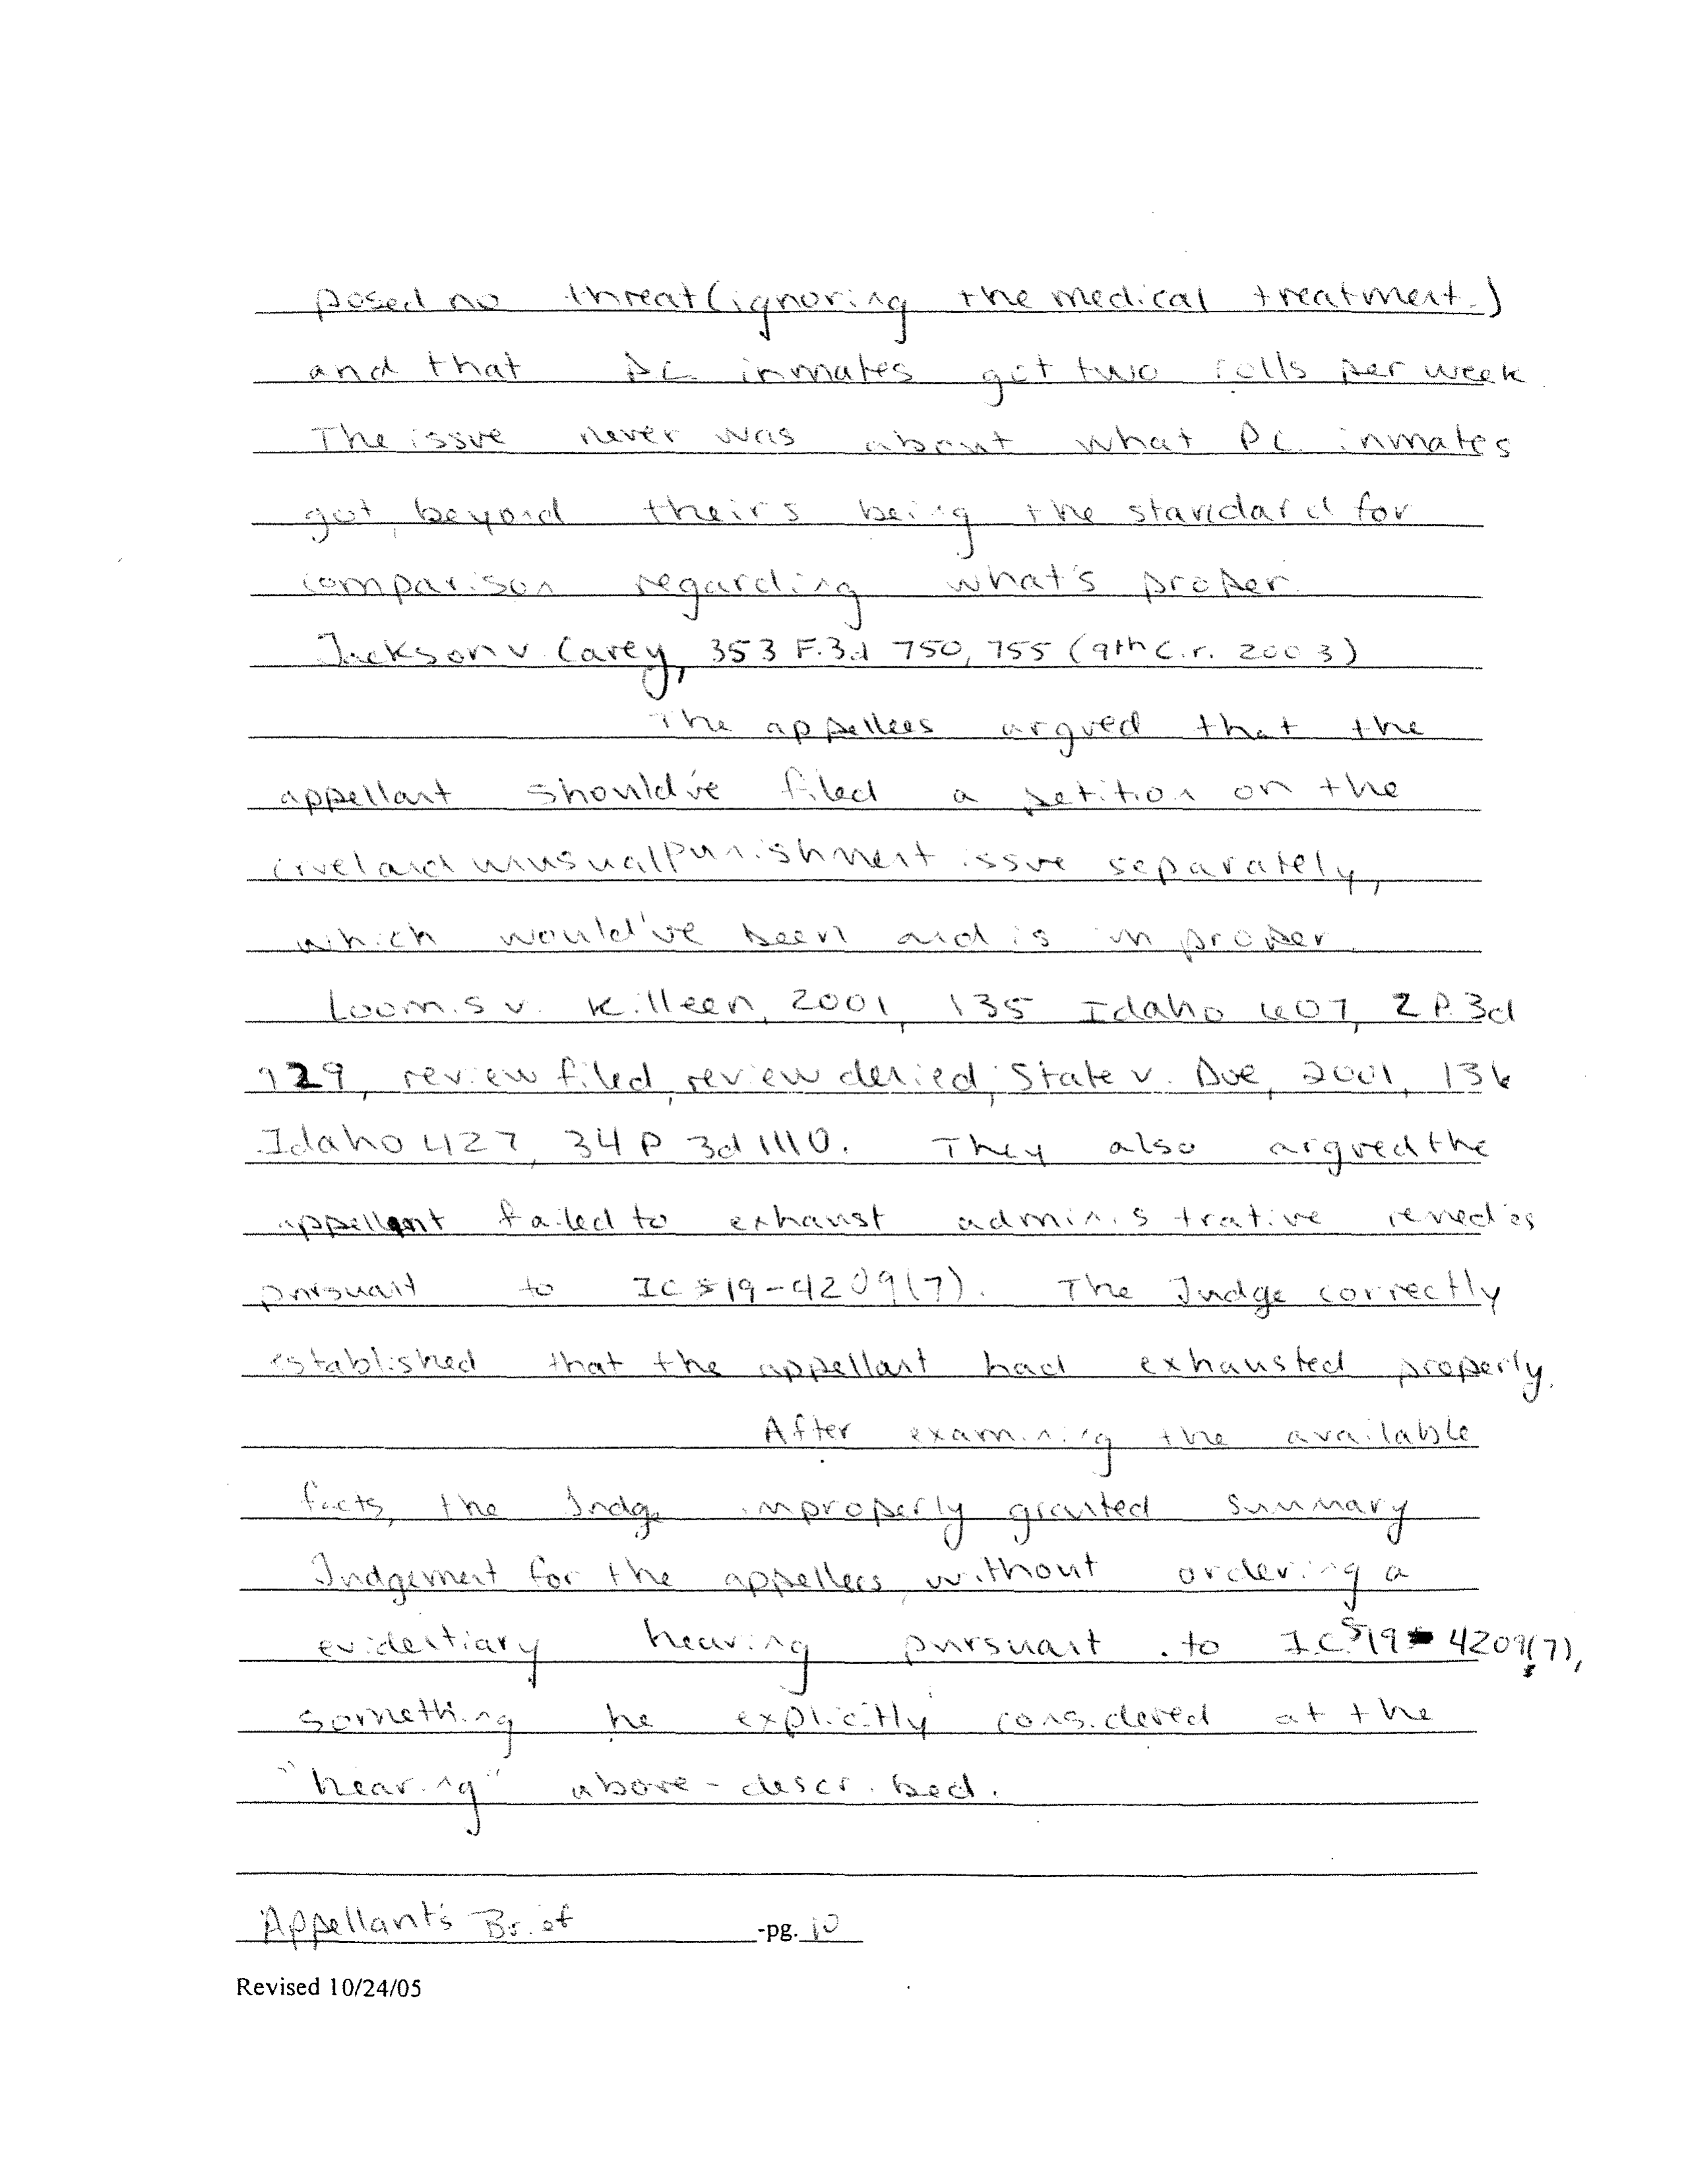 posed no threat (ignoring the medical treatment.)
and that PC inmates got two rolls per week
The issue never was about what PC inmates
got, beyond theirs being the standard for
comparison regarding what's proper.
Jackson v. Carey, 353 F.3d 750, 755 (9th Cir. 2003)
The appellees argued that the
appellant should've filed a petition on the
cruel and unusual punishment issue separately,
which would've been and is improper.
Loomis v. Killeen, 2001, 135 Idaho 607, 2 P.3d
929, review filed, review denied; State v. Doe, 2001, 136
Idaho 427, 34 P 3d 1110. They also argued the
appellant failed to exhaust administrative remedies
pursuant to IC §19-4209(7). The Judge correctly
established that the appellant had exhausted properly.
After examining the available
facts, the Judge improperly granted summary
Judgement for the appellees, without ordering a
evidentiary hearing pursuant to I.C.§19-4209(7),
something he explicitly considered at the
"hearing" above-described.
Appellant's Brief -pg. 10
Revised 10/24/05